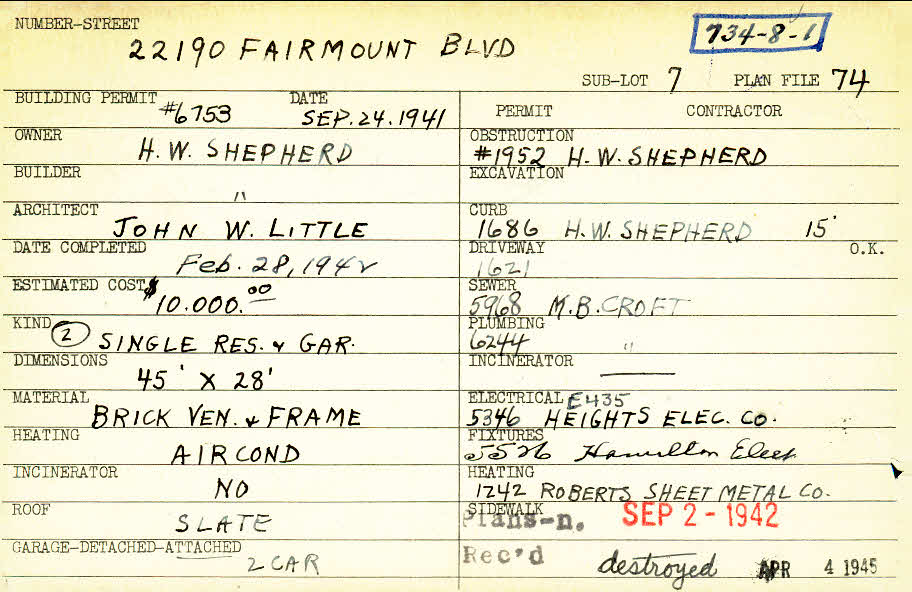 NUMBER-STREET
22190 FAIRMOUNT BLVD
734-8-1
SUB-LOT 7 PLAN FILE 74
BUILDING PERMIT #6753 DATE SEP.24.1941
OWNER H.W. SHEPHERD
BUILDER "
ARCHITECT JOHN W. LITTLE
DATE COMPLETED Feb. 28, 1942
ESTIMATED COST $10.000.00
KIND (2) SINGLE RES. & GAR.
DIMENSIONS 45' X 28'
MATERIAL BRICK VEN. & FRAME
HEATING AIR COND
INCINERATOR NO
ROOF SLATE
GARAGE-DETACHED-ATTACHED 2 CAR
PERMIT CONTRACTOR
OBSTRUCTION
#1952 H.W. SHEPHERD
EXCAVATION
CURB
1686 H.W. SHEPHERD 15'
DRIVEWAY O.K.
1621
SEWER
5968 M.B. CROFT
PLUMBING
6244 "
INCINERATOR
ELECTRICAL E435
5346 HEIGHTS ELEC. CO.
FIXTURES
5526 Hamilton Elect
HEATING
1242 ROBERTS SHEET METAL CO.
SIDEWALK
Plans-n. SEP 2 - 1942
Rec'd destroyed APR 4 1945